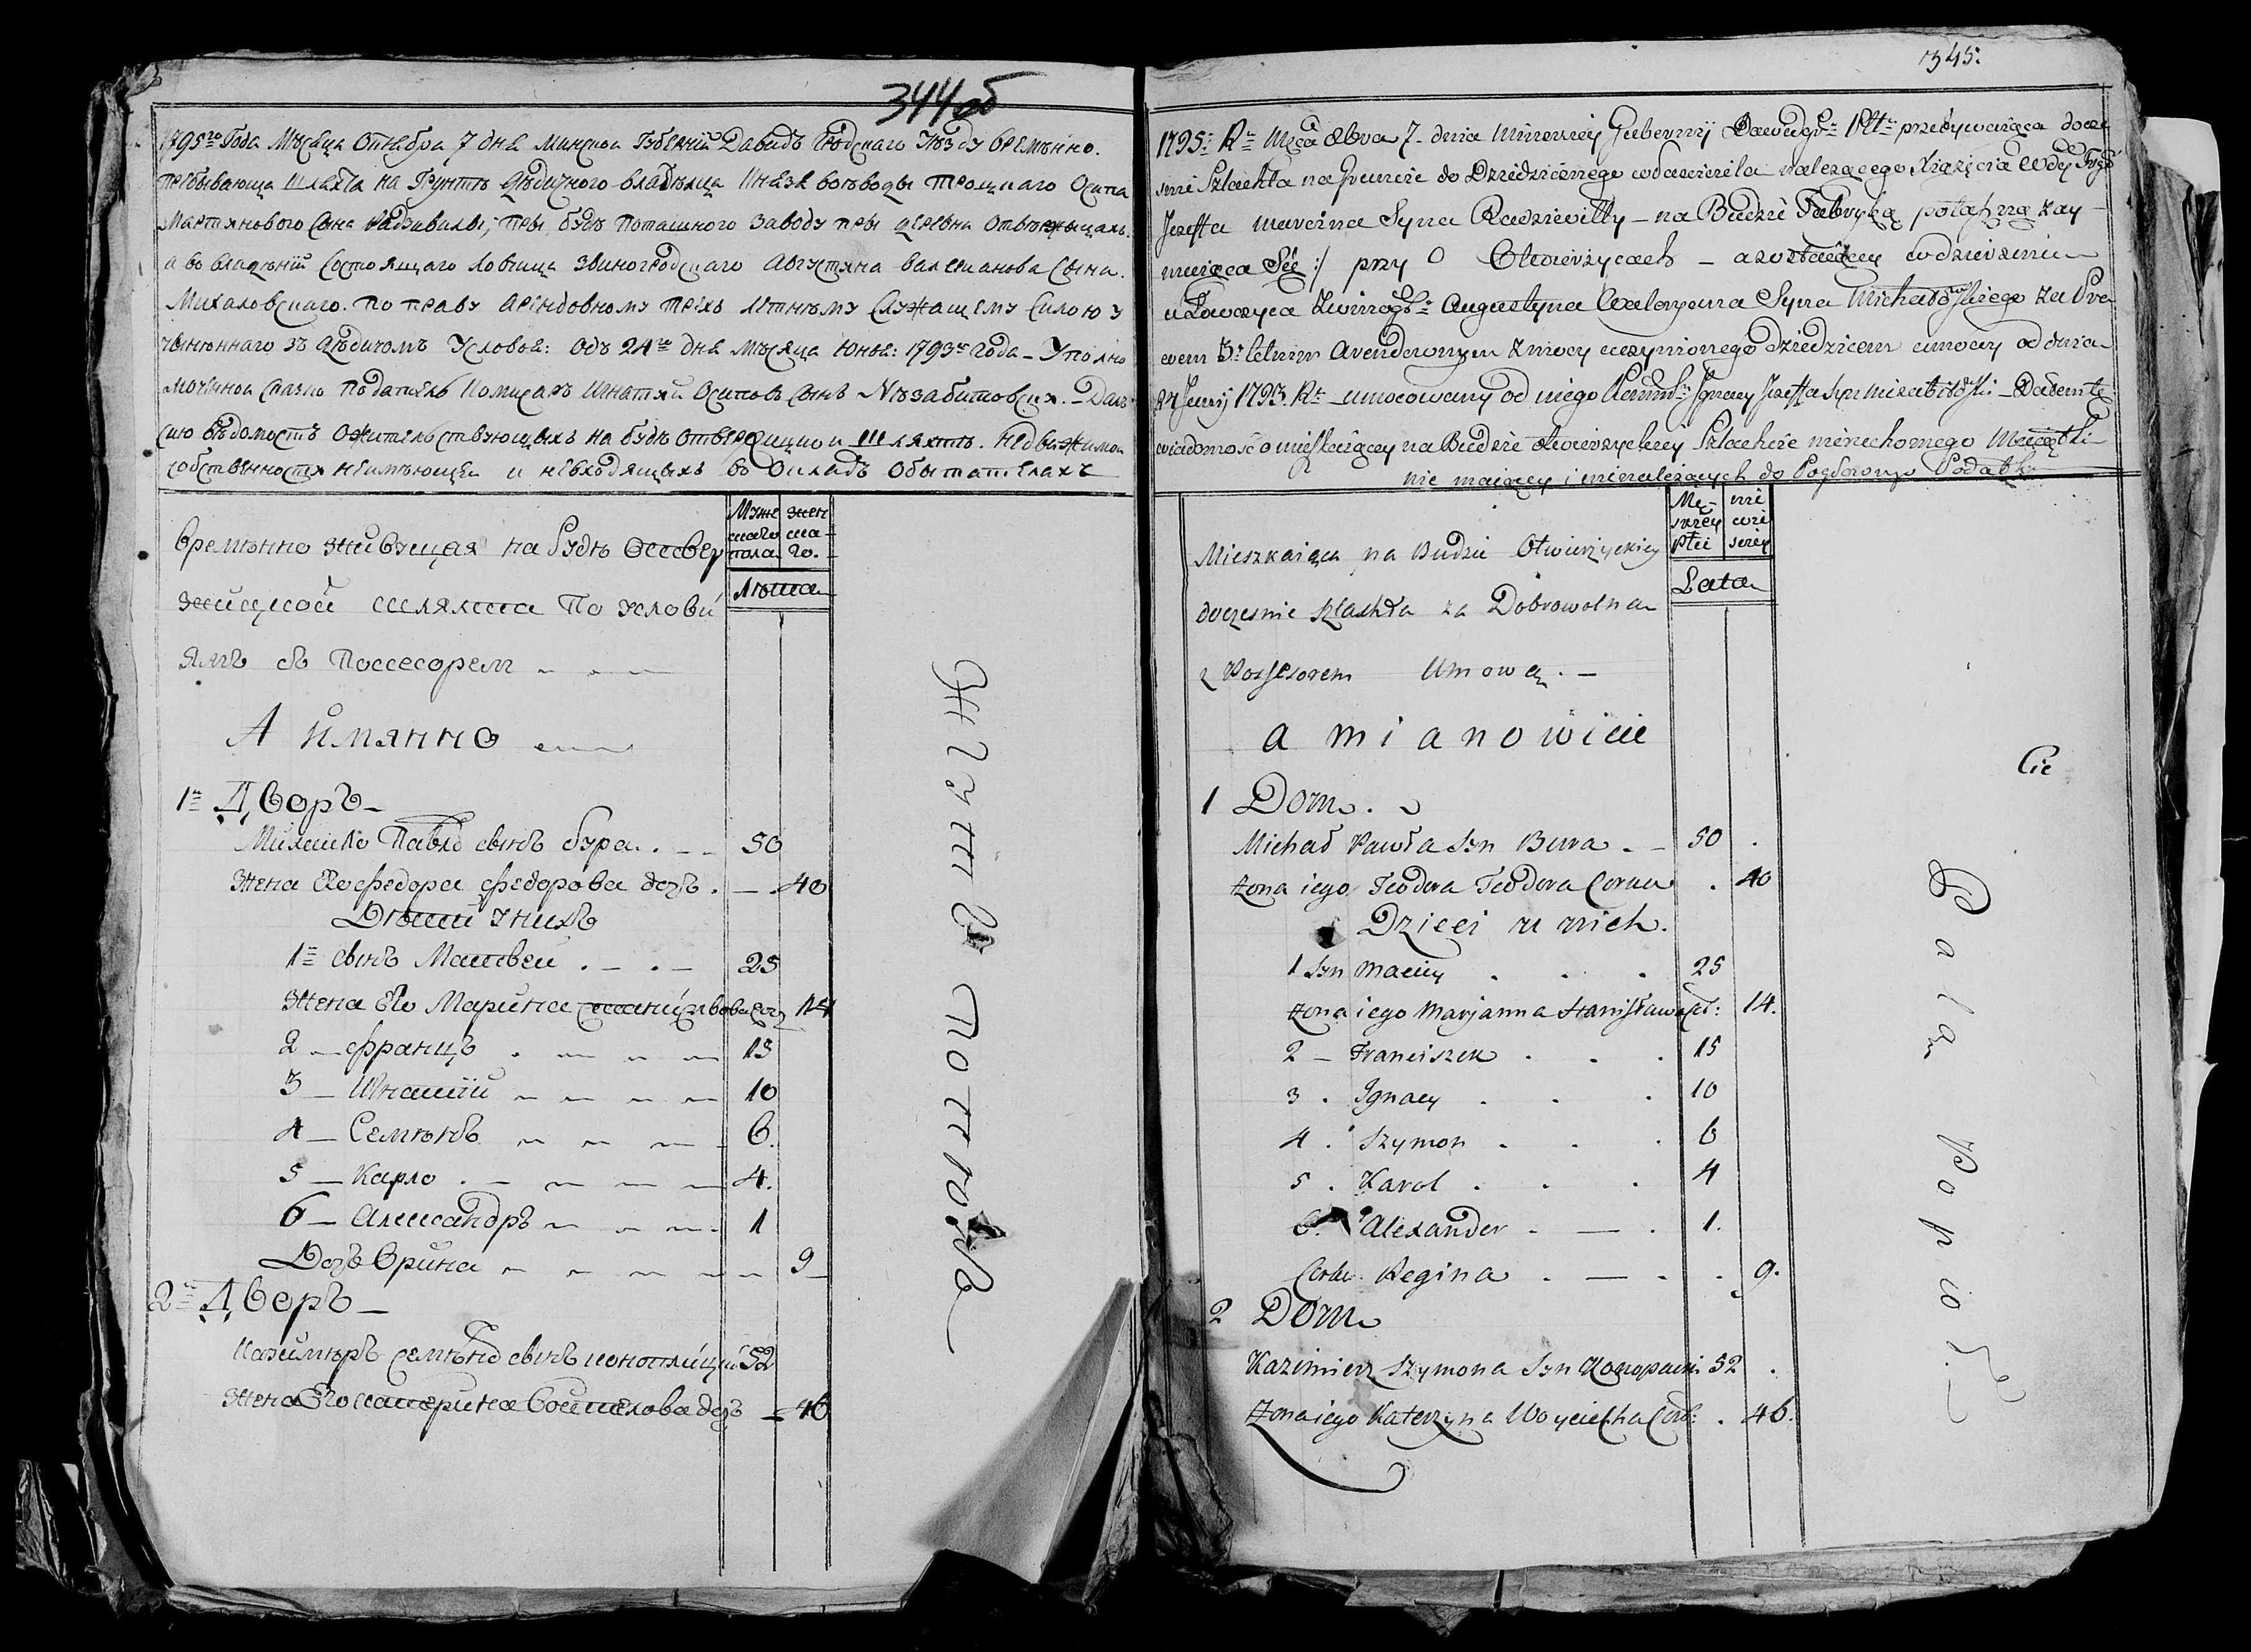 344 об
1795го Года Месяца Октября 7 дня Минской Губернiй Давидъ Гродскаго Уѣзду времѣнно.
пребывающа Шляхта на Грунтѣ дѣдичного владѣлца Князя воѣводы Троцкаго Осипа
Мартянового Сына Радзивилы; при будѣ поташного заводу при деревни Отвѣржицахъ.
а во владѣнiй Состоящаго Ловчица Звиногродскаго Августяна Валерианова Сына.
Михаловскаго. по праву арендовному трехъ лѣтнѣму Служащему Силою у
чинѣннаго зъ дѣдичомъ Условья: одъ 24го дня Мѣсяца Юня: 1793го Года – Уполно
Комисаръ Игнатяй Осиповъ Сынъ Нѣзабитовскiй. – Далъ
сию вѣдомость ожительствующихъ на будѣ Отвержицкой Шляхтѣ. Недвижимой
собственности неимѣющей и невходящыхъ въ Окладъ Обытателахъ
Времѣнно живущая на будѣ Отвер
жицкой шляхта По услови
ямъ съ Поссесоремъ
Муже
скаго
пола
жен
ска
го.
Лѣта
А имянно
1е Дворъ –
Михайло Павло сынъ бура . – – 50
Жена Его федора федорова дочь . – . 40
Дѣти у нихъ
1е сынъ Матвей . – . – 25
Жена Его Марина Станиславова доч 14
2 – францъ . – – – 15
3 – Игнатiй – – – – 10
4 – Семѣнъ – – – – 6.
5 – Карло . – – – – 4.
6 – Александръ – – – . 1
Дочь Орина – – – – – 9
2е Дворъ –
Казимѣръ Семѣно сынъ конопацкiй 52
Жена Его катерина Войтехова дочь – 46
Жгутъ Поташъ
345.
1795: Ru Mca 8bra 7. dnia Minskiey Gubernij Dawidgr: Pttu przebywaiąca docze
snie Szlachta na Gruncie do Dziedzicznego właściciela należącego Xiążęcia Wdy Trog
Jozeffa Marcina Syna Radziwiłły – na Budzie Fabryką potażną zay –
muiąca Się :/ przy O Otwierżycach – a zostaiącey w dzierżeniu
u Łowczyca Zwinogs: Augustyna Waleryana Syna Michałowskiego za Pra
wem 3: letnim Arendownym z mocy uczynionego z dziedzicem umowy od dnia
24 Junij 1793. Ru – umocowany od niego Kommis: Ignacy Jozeffa syn – Dałem tę
wiadomość o mieszkaiącey na Budzie Otwierzyckiey Szlachcie nieruchomego Maiątku
nie maiącey i nienależących do Pogłownego Podatku
Mieszkaiąca na Budzie Otwierżyckiey
doczesnie szlachta za Dobrowolną
z Possesorem Umową . –
Mę-
skiey
Płci
nie
wie
sciey
Lata
a mianowicie
1 Dom .
Michał Pawła syn Bura . – 50 .
żona iego Teodora Teodora Corka . 40
Dzieci u nich.
1 syn Maciey . . . 25
żona iego Marjanna Stanisława Cor: 14.
2 – Franciszek . . . 15
3 . Ignacy . . . 10
4 . Szymon . . . 6
5 . Karol . . . 4
6. Alexander . – . 1.
Corka Regina . – . . 9.
2 Dom
Kazimierz Szymona syn Konopacki 52 .
żona iego Katerzyna Woyciecha Cor: . 46.
Cie
Palą Popioł